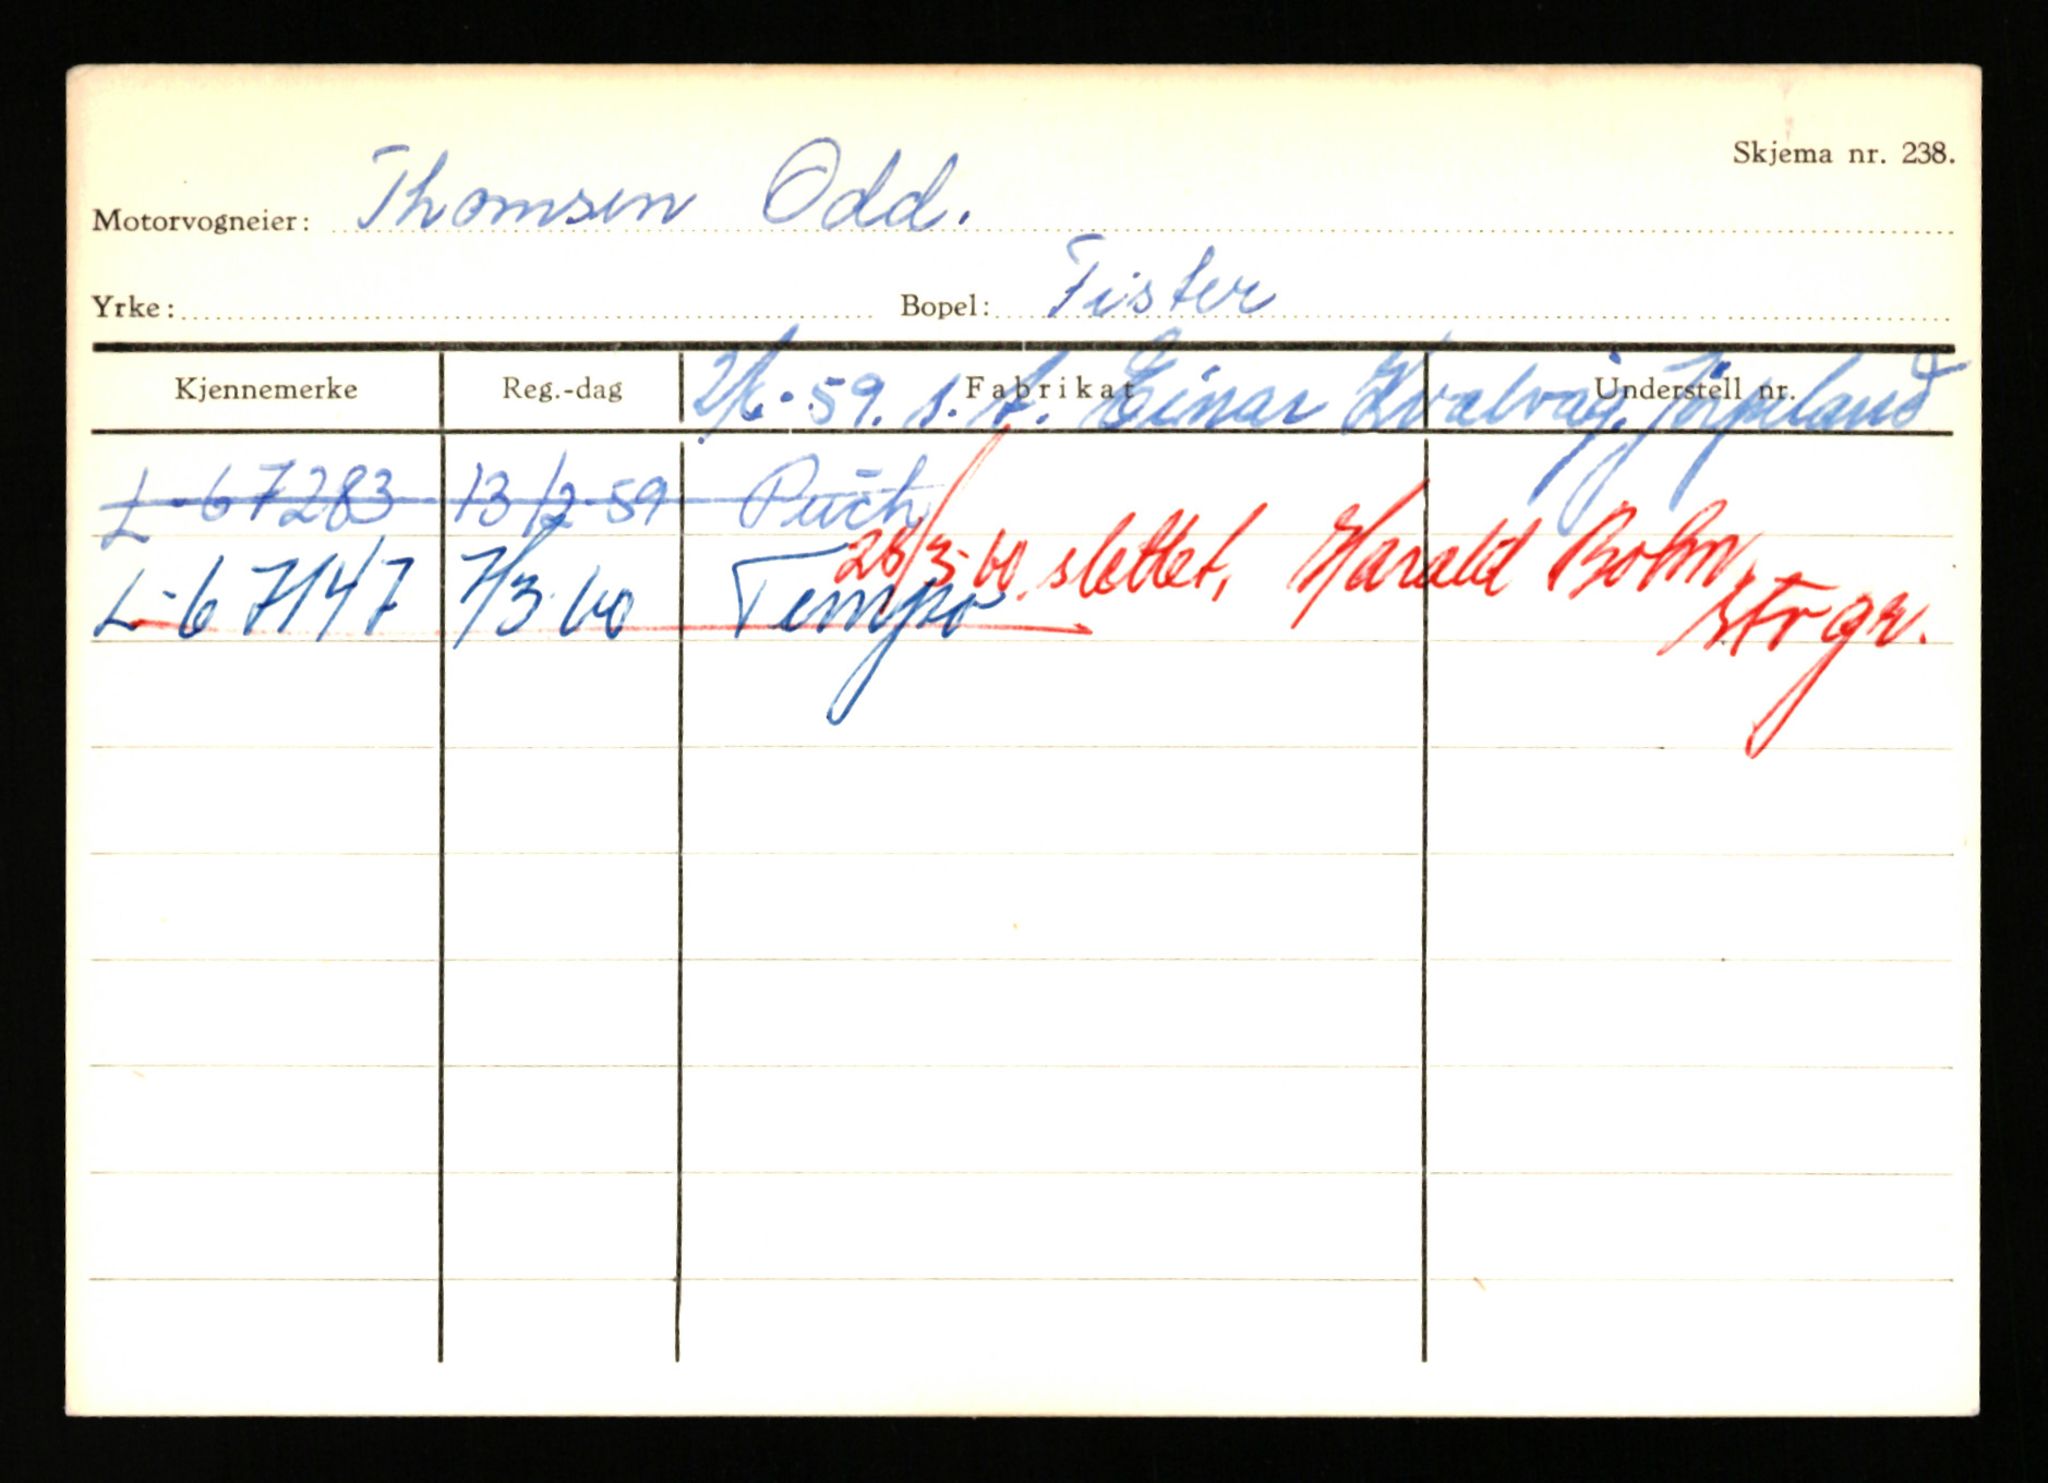 Skjema nr. 238.
Motorvogneier: Thomsen Odd.
Yrke: Bopel: Fister
Kjennemerke Reg.-dag Fabrikat Understell nr.
2/6-59. s.t. Einar Kvalvåg, Jørpeland
L-67283 13/2-59 Puch
28/3-60 slettet, Harald Bohn,
L-67147 7/3-60 Tempo
str gr.